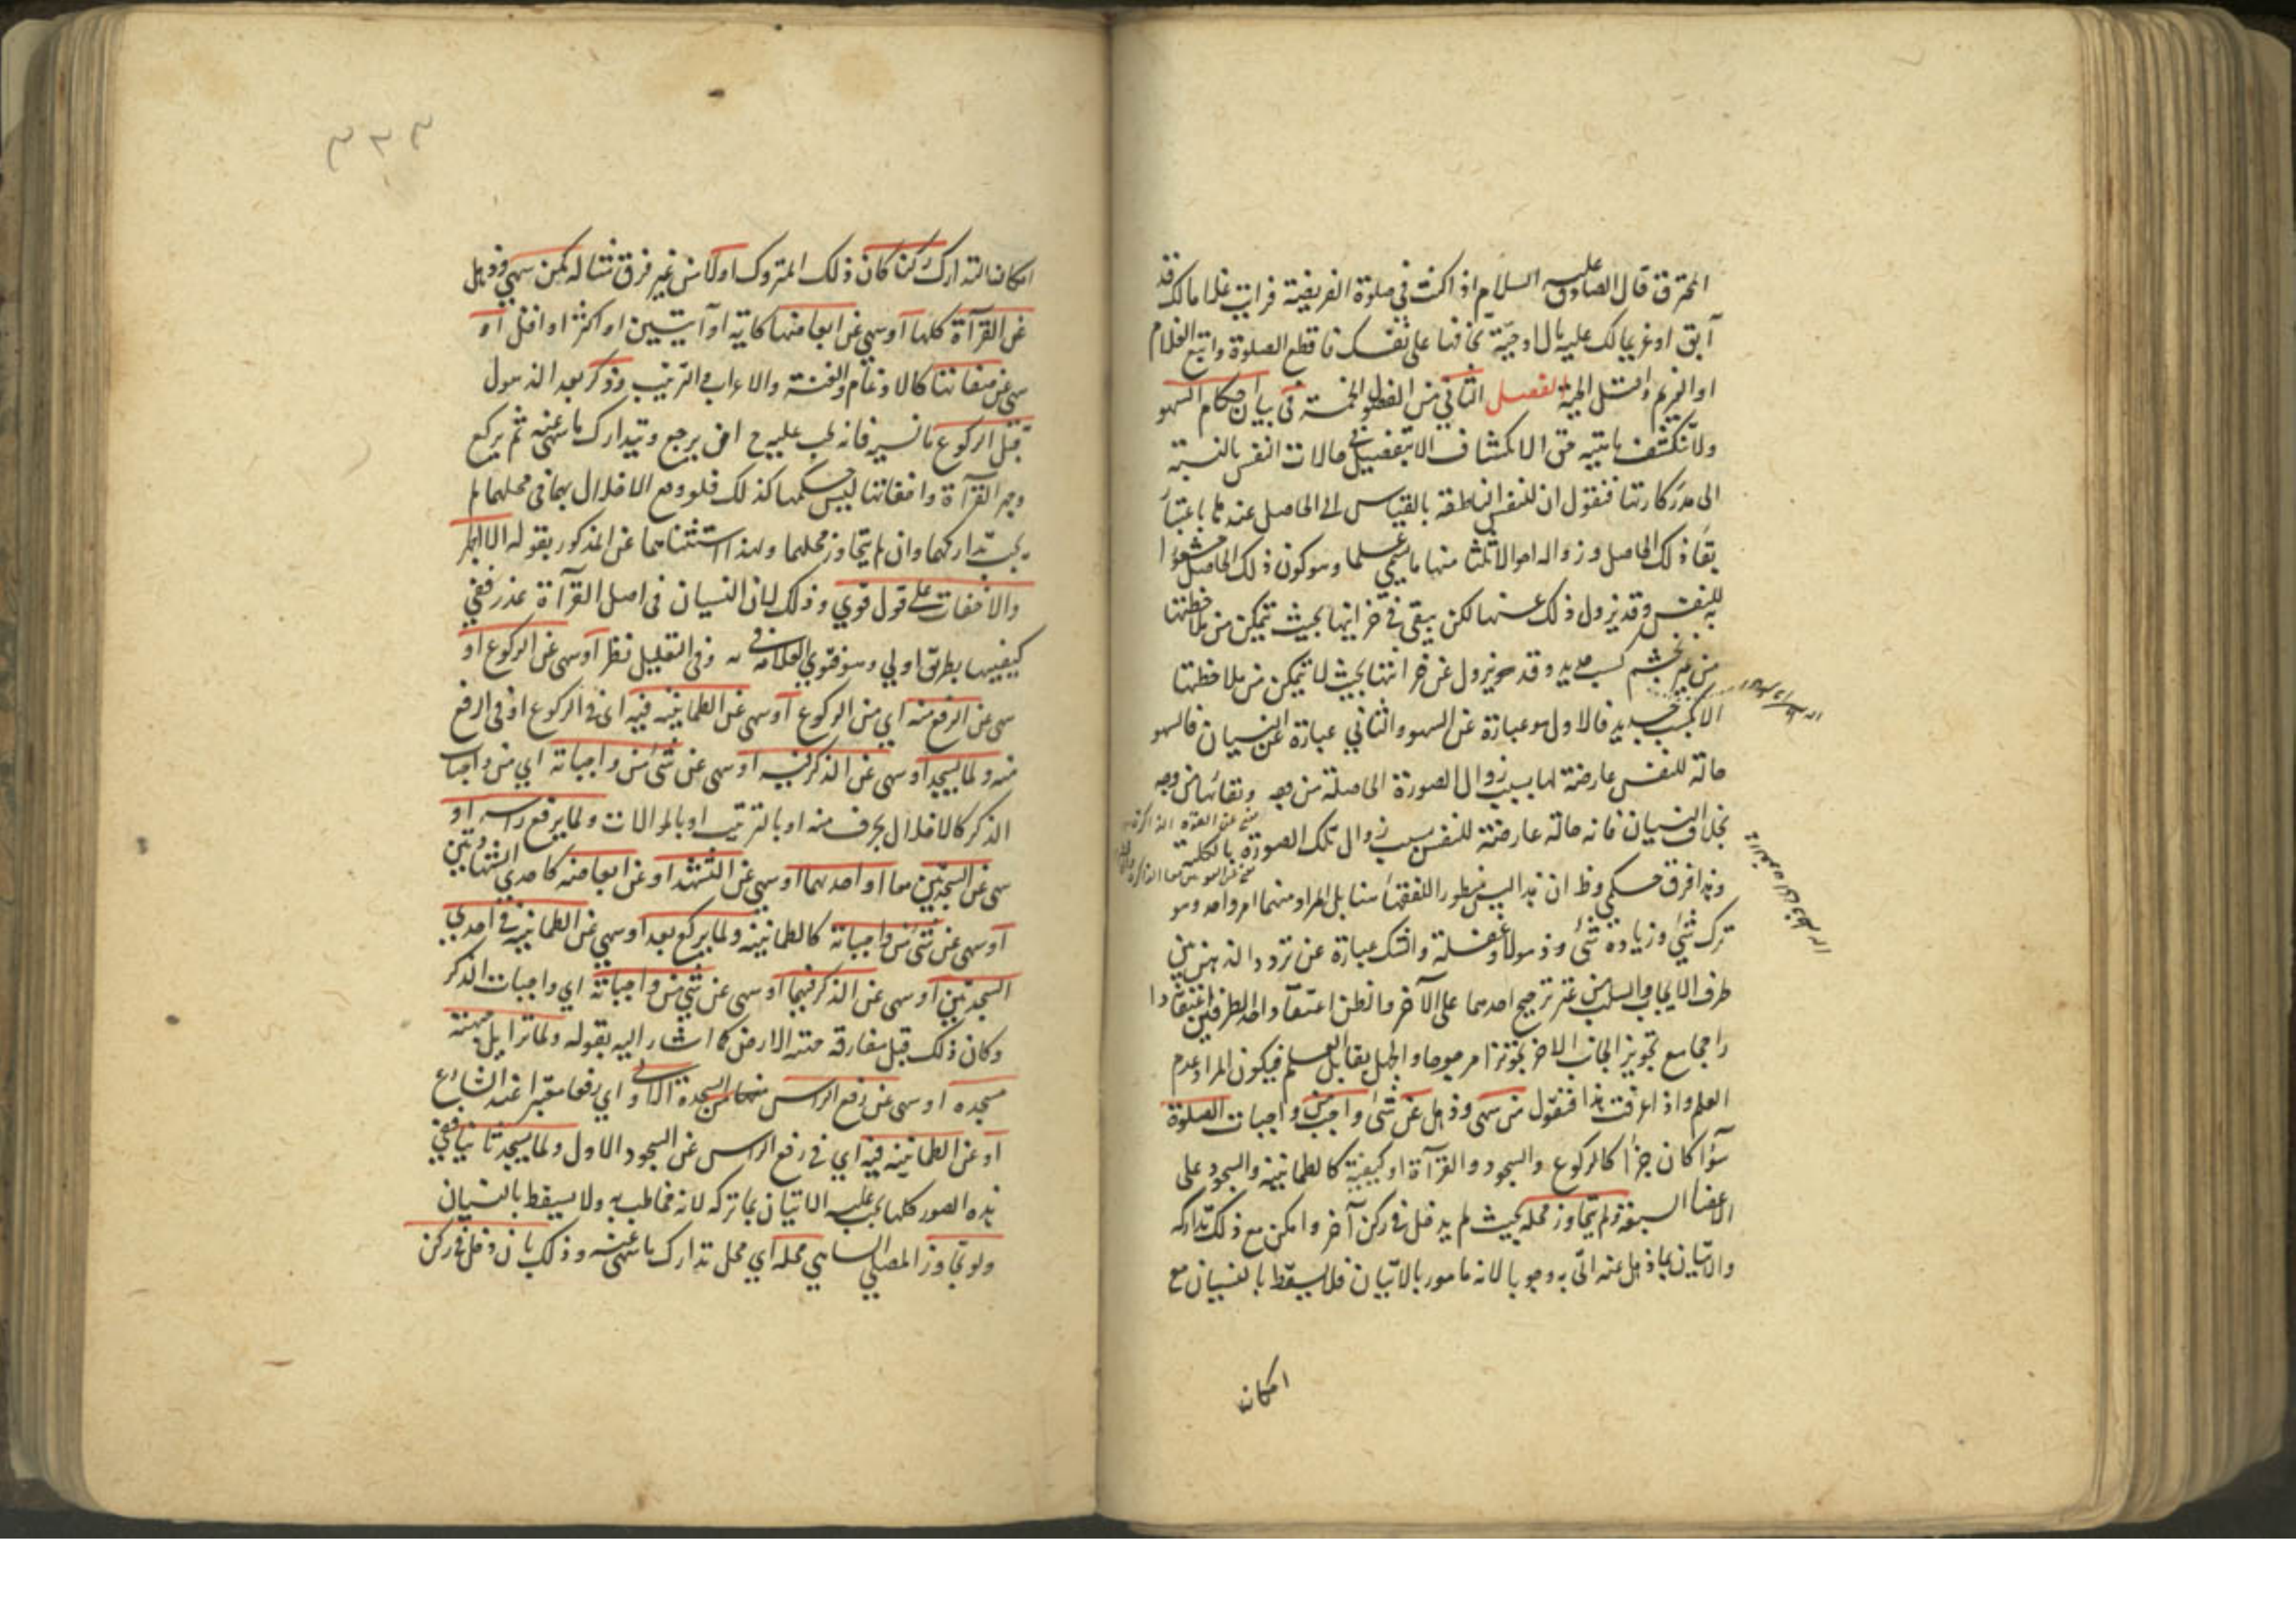 المحترق قال الصادق عليه السلام اذا كنت في صلوة الفريضة فرايت غلاما لك قد
آبق او غريما لك عليه مال او حيّة تخافها على نفسك فاقطع الصلوة واتبع الغلام
او الغريم واقتل الحية الفصل الثاني من الفصول الخمسة في بيان احكام السهو
ولا تنكشف ماهيته حق الانكشاف الا بتفصيل في حالات النفس بالنسبة
الى مدركاتها فنقول ان للنفس الناطقة بالقياس الى الحاصل عندها باعتبار
بقاء ذلك الحاصل وزواله احوالا ثلثا منها ما يسمى علما وهو كون ذلك الحاصل مشعورا
به للنفس وقد يزول ذلك عنها لكن يبقى في خزانتها بحيث تتمكن من ملاحظتها
من غير تجشم كسب جديد وقد يزول عن خزانتها بحيث لا تتمكن من ملاحظتها
الا بكسب جديد فالاول هو عبارة عن السهو والثاني عبارة عن النسيان فالسهو
حالة للنفس عارضة لها بسبب زوال الصورة الحاصلة من وجه وبقائها من وجه
بخلاف النسيان فانه حالة عارضة للنفس بسبب زوال تلك الصورة بالكلية
وهذا فرق حكمي وظ ان هذا ليس منظور الفقهاء هنا بل المراد منهما امر واحد وهو
ترك شئ او زيادة شئ وذهولا وغفلة والشك عبارة عن تردد الذهن بين
طرف الايجاب والسلب من غير ترجيح احدهما على الآخر والظن اعتقاد احد الطرفين اعتقادا
راجحا مع تجويز الجانب الاخر تجويزا مرجوحا والجهل يقابل العلم فيكون المراد عدم
العلم واذا عرفت هذا فنقول من سهى وذهل عن شئ واجب من واجبات الصلوة
سواء كان جزأ كالركوع والسجود والقرآءة او كيفية كالطمانينة والسجود على
الاعضاء السبعة ولم يتجاوز محله بحيث لم يدخل في ركن آخر وامكن مع ذلك تداركه
والاتيان بما ذهل عنه اتى به وجوبا لانه مامور بالاتيان فلا يسقط بالنسيان مع
امكان
٣٣٣
امكان التدارك ركنا كان ذلك المتروك اولا من غير فرق مثاله كمن سهى وذهل
عن القرآءة كلها او سهى عن ابعاضها كآية او آيتين او اكثر او اقل او
سهى عن صفاتها كالادغام والغنة والاعراب والترتيب وذكر بعد الذهول
قبل الركوع ما نسيه فانه يجب عليه ح ان يرجع ويتدارك ما سهى عنه ثم يركع
وجهر القرآءة واخفاتها ليس حكمها كذلك فلو وقع الاخلال بهما في محلهما لم
يجب تداركهما وان لم يتجاوز محلهما ولهذا استثناهما عن المذكور بقوله الا الجهر
والاخفات على قول قوي وذلك لان النسيان في اصل القرآءة عذر ففي
كيفيتها بطريق اولى وهو فتوى العلامة وفي التعليل نظر او سهى عن الركوع او
سهى عن الرفع منه اي من الركوع او سهى عن الطمانينة فيه اى في الركوع او في الرفع
منه ولما يسجد او سهى عن الذكر فيه او سهى عن شئ من واجباته اي من واجبات
الذكر كالاخلال بحرف منه او بالترتيب او بالموالات ولما يرفع راسه او
سهى عن السجدتين معا او احدهما او سهى عن التشهد او عن ابعاضه كاحدى الشهادتين
او سهى عن شئ من واجباته كالطمانينة ولما يركع بعد او سهى عن الطمانينة في احدى
السجدتين او سهى عن الذكر فيهما او سهى عن شئ من واجباته اي واجبات الذكر
وكان ذلك قبل مفارقة جبهته الارض كما اشار اليه بقوله ولما تزايل جبهته
مسجده او سهى عن رفع الراس من السجدة الاولى اي رفعا معتبرا عند الشارع
او عن الطمانينة فيه اي في رفع الراس عن السجود الاول ولما يسجد ثانيا ففي
هذه الصور كلها يجب عليه الاتيان بما تركه لانه مخاطب به ولا يسقط بالنسيان
ولو تجاوز المصلي الساهي محله اي محل تدارك ما سهى عنه وذلك بان دخل في ركن